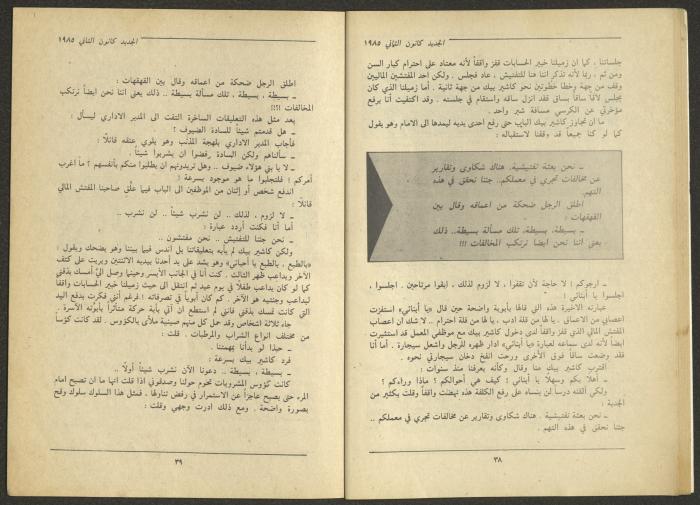 الجديد كانون الثاني ١٩٨٥
جلساتنا ، كما ان زميلنا خبير الحسابات قفز واقفاً لأنه معتاد على احترام كبار السن
ومن ثم ، ربما لأنه تذكر اننا هنا للتفتيش ، عاد فجلس . ولكن احد المفتشين الماليين
وقف من جهة وخطا خطوتين نحو كاشير بيك من جهة ثانية . أما زميلنا الذي كان
يجلس لافاً ساقاً بساق فقد انزل ساقه واستقام في جلسته . وقد اكتفيت أنا برفع
مؤخرتي عن الكرسي مسافة شبر واحد .
ما ان تجاوز كاشير بيك الباب حتى رفع احدى يديه ليمدها الى الامام وهو يقول
كما لو كنا جميعاً قد وقفنا لاستقباله :
ـ نحن بعثة تفتيشية. هناك شكاوى وتقارير
عن مخالفات تجري في معملكم.. جئنا نحقق في هذه
التهم.
اطلق الرجل ضحكة من اعماقه وقال بين
القهقهات :
ـ بسيطة، بسيطة، تلك مسألة بسيطة.. ذلك
يعني اننا نحن ايضا نرتكب المخالفات !!!
ـ ارجوكم ! لا حاجة لأن تقفوا ، لا لزوم لذلك ، ابقوا مرتاحين . اجلسوا ،
اجلسوا يا أبنائي !
عبارته الاخيرة هذه التي قالها بأبوية واضحة حين قال «يا أبنائي» استفزت
اعصابي من الاعماق . يا لها من قلة ادب ، يا لها من قلة احترام .. لا شك ان اعصاب
المفتش المالي الذي قفز واقفاً لدى دخول كاشير بيك مع موظفي المعمل قد استشيرت
ايضا لأنه لدى سماعه لعبارة «يا أبنائي» ادار ظهره للرجل واشعل سيجارة . أما أنا
فقد وضعت ساقاً فوق الأخرى ورحت انفخ دخان سيجارتي نحوه .
اقترب كاشير بيك منا وقال وكأنه يعرفنا منذ سنوات :
ـ أهلا بكم وسهلًا يا أبنائي ! كيف هي أحوالكم ؟ ماذا وراءكم ؟
ولكي القنه درساً لن ينساه على رفع الكلفة هذه نهضت واقفاً وقلت بكثير من
الجدية :
ـ نحن بعثة تفتيشية . هناك شكاوى وتقارير عن مخالفات تجري في معملكم ..
جئنا نحقق في هذه التهم .
٣٨
الجديد كانون الثاني ١٩٨٥
اطلق الرجل ضحكة من اعماقه وقال بين القهقهات :
ـ بسيطة ، بسيطة ، تلك مسألة بسيطة .. ذلك يعني اننا نحن ايضاً نرتكب
المخالفات !؟!!
بعد مثل هذه التعليقات الساخرة التفت الى المدير الاداري ليسأل :
ـ هل قدمتم شيئاً للسادة الضيوف ؟
فأجاب المدير الاداري بلهجة المذنب وهو يلوي عنقه قائلًا :
ـ سألناهم ولكن السادة رفضوا ان يشربوا شيئاً .
ـ لا يا بني هؤلاء ضيوف .. وهل تريدونهم ان يطلبوا منكم بأنفسهم ؟ ما اغرب
أمركم ! فلتجلبوا ما هو موجود بسرعة !
اندفع شخص أو إثنان من الموظفين الى الباب فيما علّق صاحبنا المفتش المالي
قائلًا :
ـ لا لزوم ، لذلك .. لن نشرب شيئاً .. لن نشرب ..
أما أنا فكنت أردد عبارة :
ـ نحن جئنا للتفتيش .. نحن مفتشون ..
ولكن كاشير بيك لم يأبه بتعليقاتنا بل اندس فيما بيننا وهو يضحك ويقول :
«بالطبع ، بالطبع يا أحبائي» وهو يشد على يد أحدنا بيديه الاثنتين ويربت على كتف
الآخر ويداعب ظهر الثالث . كنت أنا في الجانب الأيسر وحينما وصل اليّ أمسك بذقني
كما لو كان يداعب طفلًا في يوم عيد ثم انتقل الى حيث زميلنا خبير الحسابات واقفاً
ليداعب وجنتيه هو الآخر . كم كان أبوياً في تصرفاته ! فرغم أنني فكرت بدفع اليد
التي كانت تمسك بذقني فانني لم استطع ان آتي بأية حركة متأثراً بأبوته الآسرة .
جاء ثلاثة اشخاص وقد حمل كل منهم صينية ملأى بالكؤوس . لقد كانت كؤوساً
من مختلف انواع الشراب والمرطبات . قلت :
ـ حبذا لو بدأنا بمهمتنا .
فرد كاشير بيك بسرعة :
ـ بسيطة ، بسيطة .. دعونا الآن نشرب شيئاً أولًا ..
كانت كؤوس المشروبات تحوم حولنا وصدقوني اذا قلت انها ما ان تصبح امام
المرء حتى يصبح عاجزاً عن الاستمرار في رفض تناولها . فمثل هذا السلوك سلوك وقح
بصورة واضحة . ومع ذلك ادرت وجهي وقلت :
٣٩